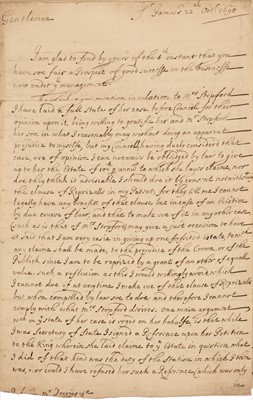 Gentlemen
St James's 22th Oct. 1698
I am glad to find by yours of the 6th instant that you
have soe fair a Prospect of good successe in the businesse
now under yr management.
you mention in relation to Mrs
have laid a full State of her case before Councill for their
opinion upon it, being willing to gratifie her and Mr
her son in what I reasonably may without doing an apparent
prejudice to my selfe, but my Councill having duely considered that
case, are of opinion I can no wayes be obliged by law to give
up to her the Estate of to which she layes claime, nor
doe they think it adviseable I should doe it by consent notwithstanding
the clause of Reprizalls in my Patent, for they tell me I cannot
legally have any benefit of that clause but in case of an Eviction
by due course of law, and that to make use of it in any other case
such as is that of Mrs may give a just occasion to have
it said that I am very easie in giving up one of these Estates to wch
any claime shall be made, to the prejudice of the Crown or of the
Publick since I am to be reprized by a grant of an other of equall
value. such a reflexion as this I would willingly avoid which
I cannot doe if at any time I make use of that clause of Reprizalls
but when compelled by law soe to doe, and therefore I cannot
comply with what Mrs desires. one main argument
wch in State of her case is urged on her behalfe is that while
I was Secretary of State I signed a Reference upon her Petition
to the King wherein she laid claime to ye Estate in question, what
I did of that kind was the duty of the Station in which I then
was, nor could I have refused her such a Reference which was only
in